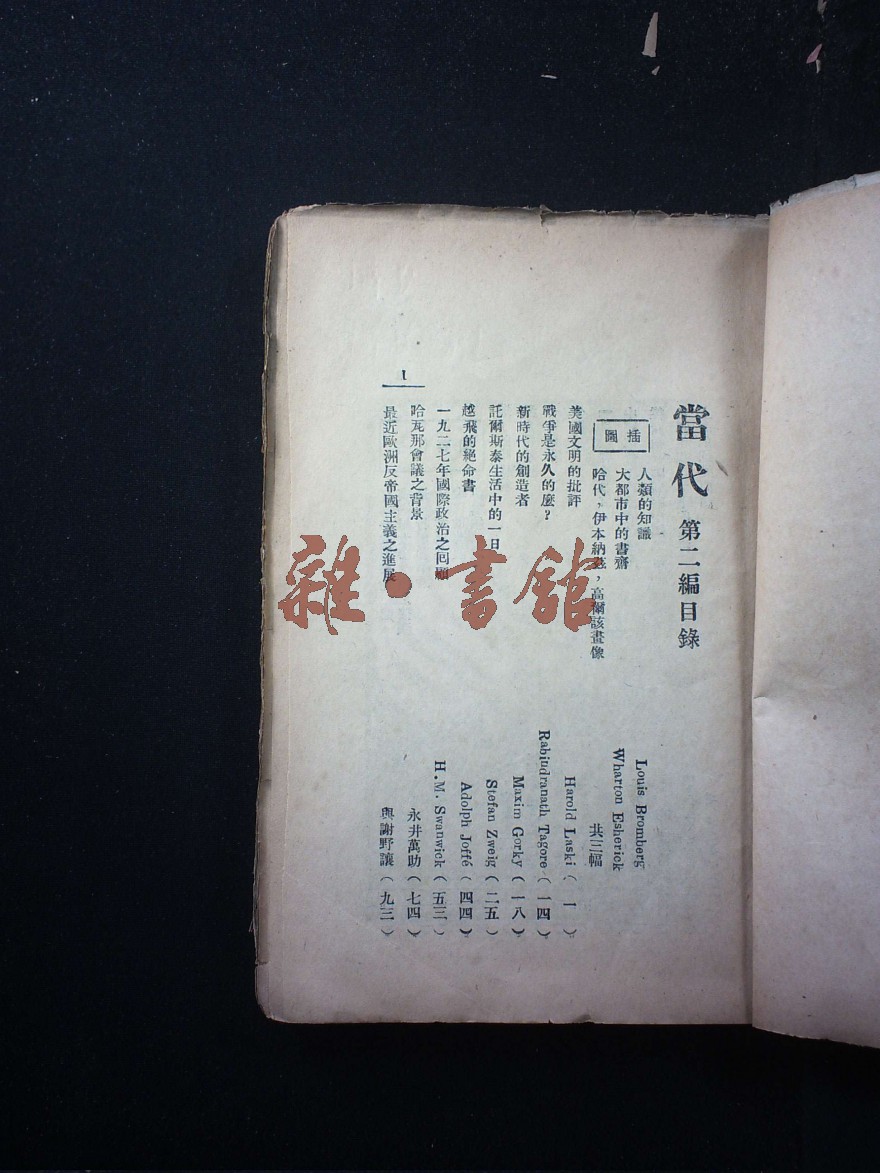 當代 第二編目錄
插圖
人類的知識 Louis Bromberg
大都市中的書齋 Wharton Esherick
哈代，伊本納茲，高爾該畫像 共三幅
美國文明的批評 Harold Laski（一）
戰爭是永久的麼？ Rabiudranath Tagore（一四）
新時代的創造者 Maxim Gorky（一八）
託爾斯泰生活中的一日 Stefan Zweig（二五）
越飛的絕命書 Adolph Joffé（四四）
一九二七年國際政治之回顧 H.M. Swanwick（五三）
哈瓦那會議之背景 永井萬助（七四）
最近歐洲反帝國主義之進展 與謝野讓（九三）
1
雜·書館